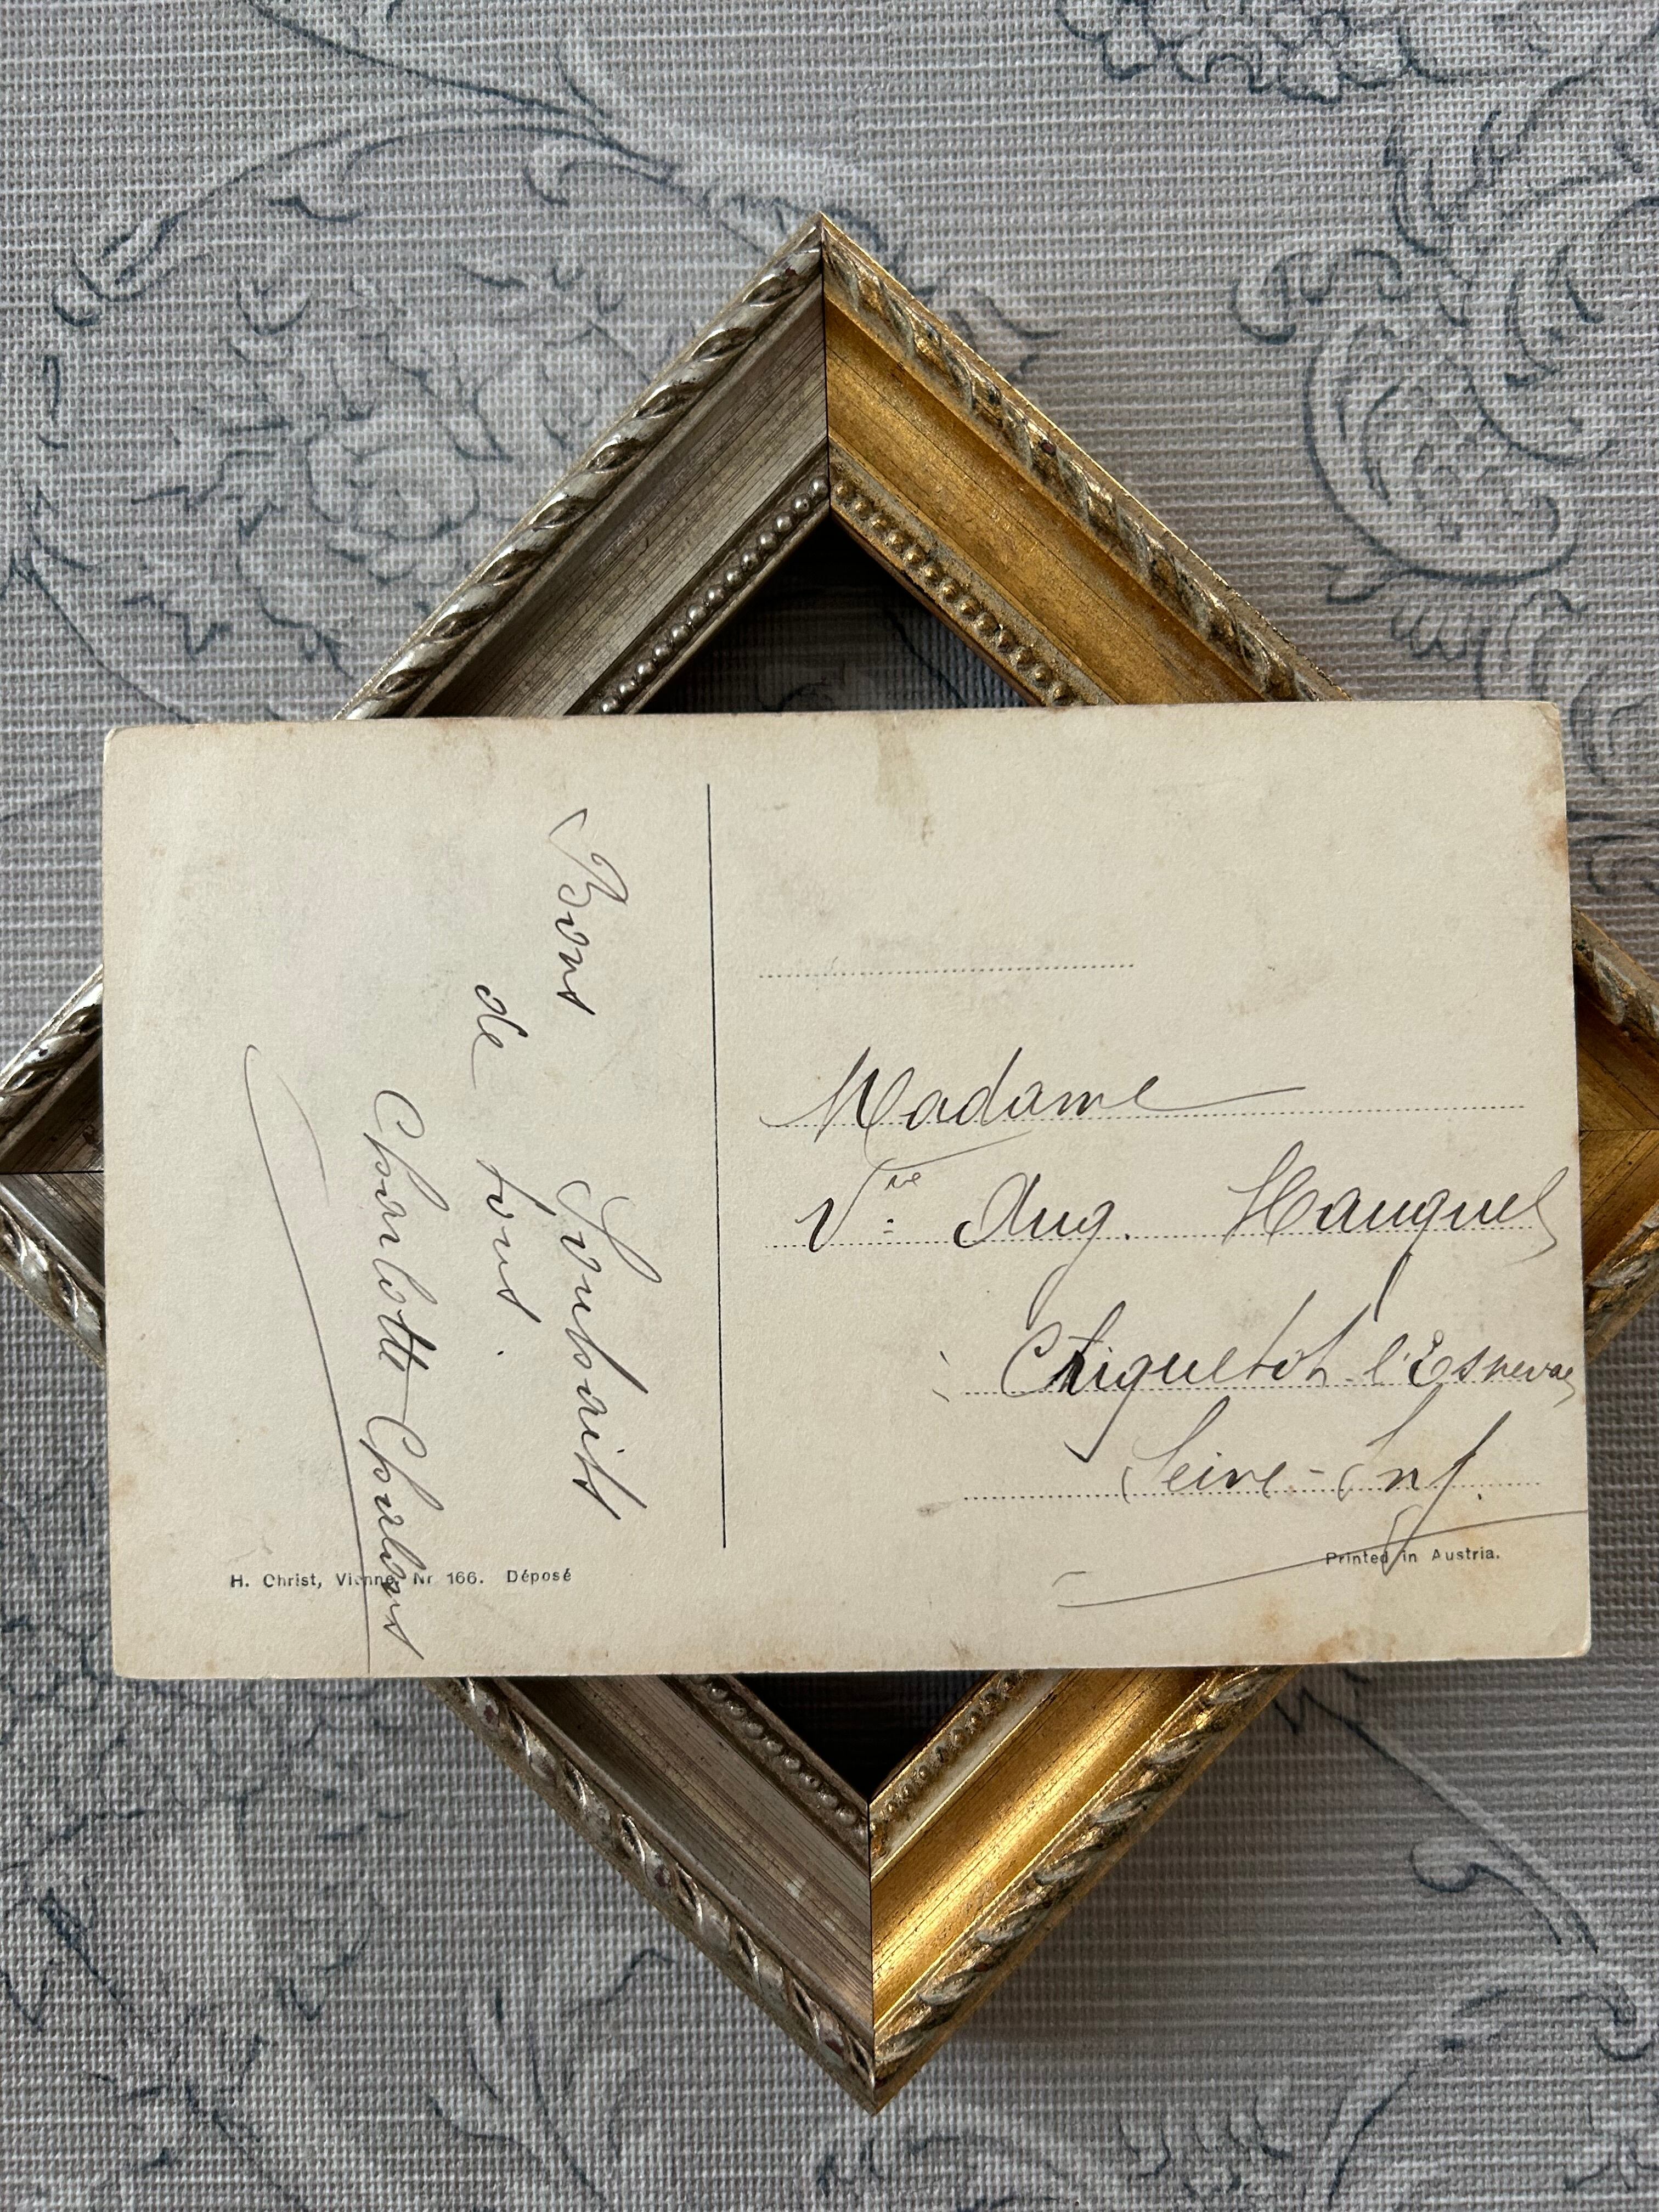 Bons Souhaits
de tous.
Charlotte Chalons
H. Christ, Vienne Nr 166. Déposé
Madame
Vve Aug. Hauguel
Criquetot l'Esneval
Seine-Inf.
Printed in Austria.